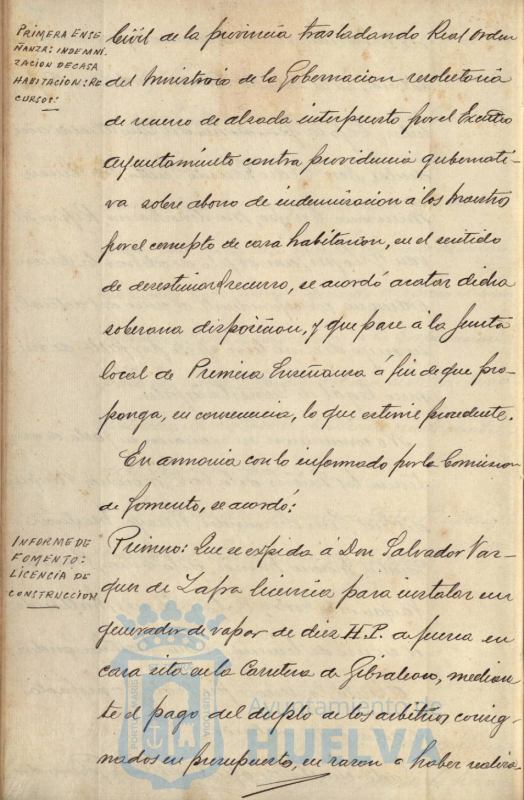 PRIMERA ENSE
ÑANZA: INDEMNI
ZACION DE CASA
HABITACION: RE
CURSOS:
Civil de la provincia trasladando Real Orden
del Ministerio de la Gobernacion resolutoria
de recurso de alzada interpuesto por el Excmo
Ayuntamiento contra providencia gubernati-
va sobre abono de indemnizacion á los Maestros
por el concepto de casa habitacion, en el sentido
de desestimar el recurso, se acordó acatar dicha
soberana disposicion, y que pase á la Junta
local de Primera Enseñanza á fin de que pro-
ponga, en consecuencia, lo que estime procedente.
En armonia con lo informado por la Comision
de Fomento, se acordó:
INFORME DE
FOMENTO:
LICENCIA DE
CONSTRUCCION
Primero: Que se expida á Don Salvador Vaz-
quez de Zafra licencia para instalar un
generador de vapor de diez H.P. de fuerza en
casa sita en la Carretera de Gibraleon, median-
te el pago del duplo de los arbitrios consig-
nados en presupuesto, en razon á haber realiza-
Ayuntamiento de
HUELVA